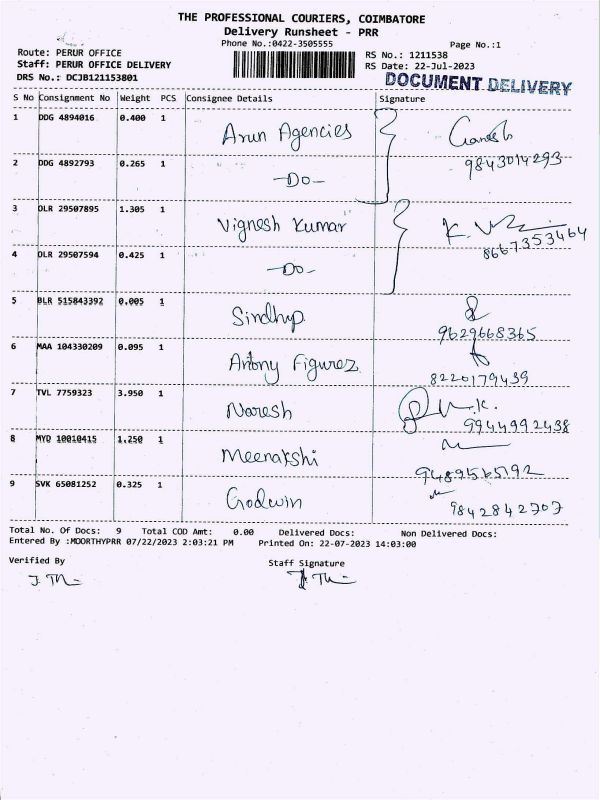 THE PROFESSIONAL COURIERS, COIMBATORE
Delivery Runsheet - PRR
Phone No.:0422-3505555 Page No.:1
Route: PERUR OFFICE RS No.: 1211538
Staff: PERUR OFFICE DELIVERY RS Date: 22-Jul-2023
DRS No.: DCJB121153801 DOCUMENT DELIVERY
S No Consignment No Weight PCS Consignee Details Signature
1 DDG 4894016 0.400 1 Arun Agencies Ganesh
9843014293
2 DDG 4892793 0.265 1 -Do-
3 DLR 29507895 1.305 1 Vignesh Kumar
8667353464
4 DLR 29507594 0.425 1 -Do-
5 BLR 515843392 0.005 1 Sindhup
9629668365
6 MAA 104330209 0.095 1 Antony Figurez
8220179439
7 TVL 7759323 3.950 1 Naresh
9944992438
8 MYD 10010415 1.250 1 Meenakshi
9489565192
9 SVK 65081252 0.325 1 Godwin
9842842707
Total No. Of Docs: 9 Total COD Amt: 0.00 Delivered Docs: Non Delivered Docs:
Entered By :MOORTHYPRR 07/22/2023 2:03:21 PM Printed On: 22-07-2023 14:03:00
Verified By Staff Signature